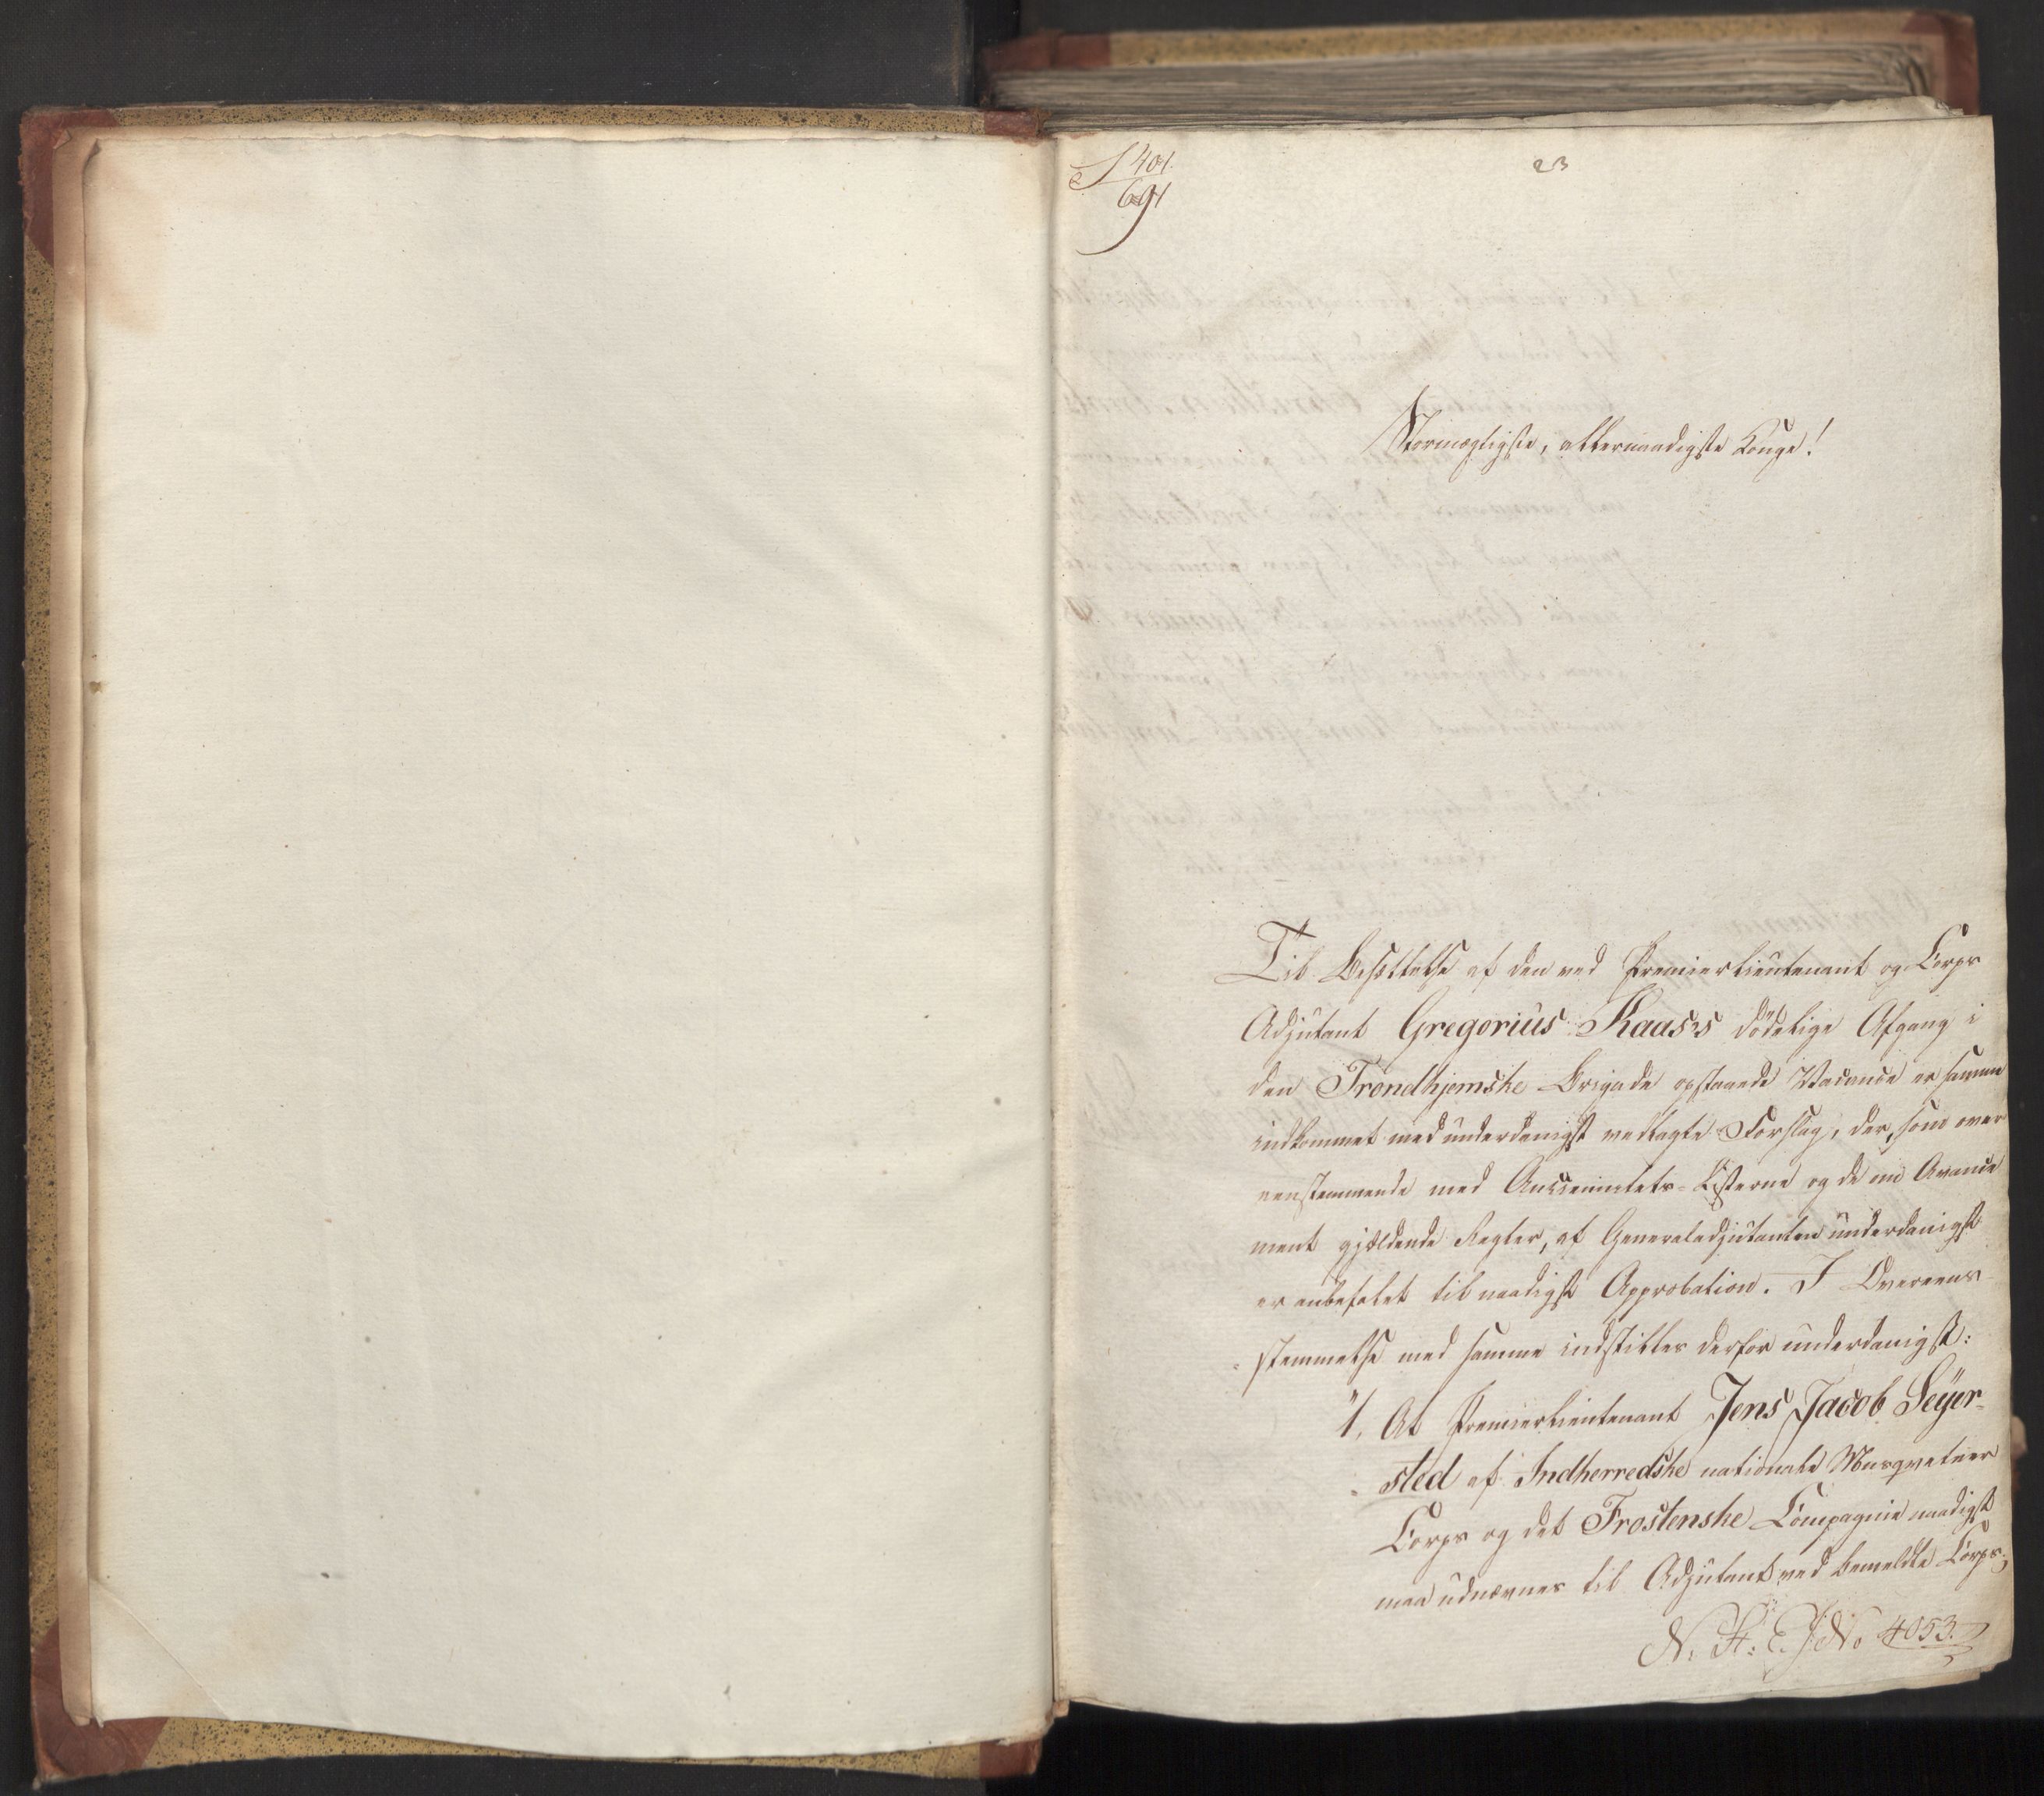 401
691
23
Stormægtigste, allernaadigste Konge!
Til Besættelse af den ved Premierlieutenant og Corps
Adjutant Gregorius Kaas's dödelige Afgang i
den Trondhjemske Brigade opstaaede Vacance er hermed
indkommet med underdanigst vedlagte Forslag, der, som over
eenstemmende med Anciennitets-Listerne og de om Avance
ment gjældende Regler, af Generaladjutanten underdanigst
er anbefalet til naadigst Approbation. I Overeens
stemmelse med samme indstilles derfor underdanigst:
1, At Premierlieutenant Jens Jacob Seÿer-
sted af Indherredske nationale Musqveteer
Corps og det Frostenske Compagnie naadigst
maa udnævnes til Adjutant ved bemeldte Corps;
No 4053.